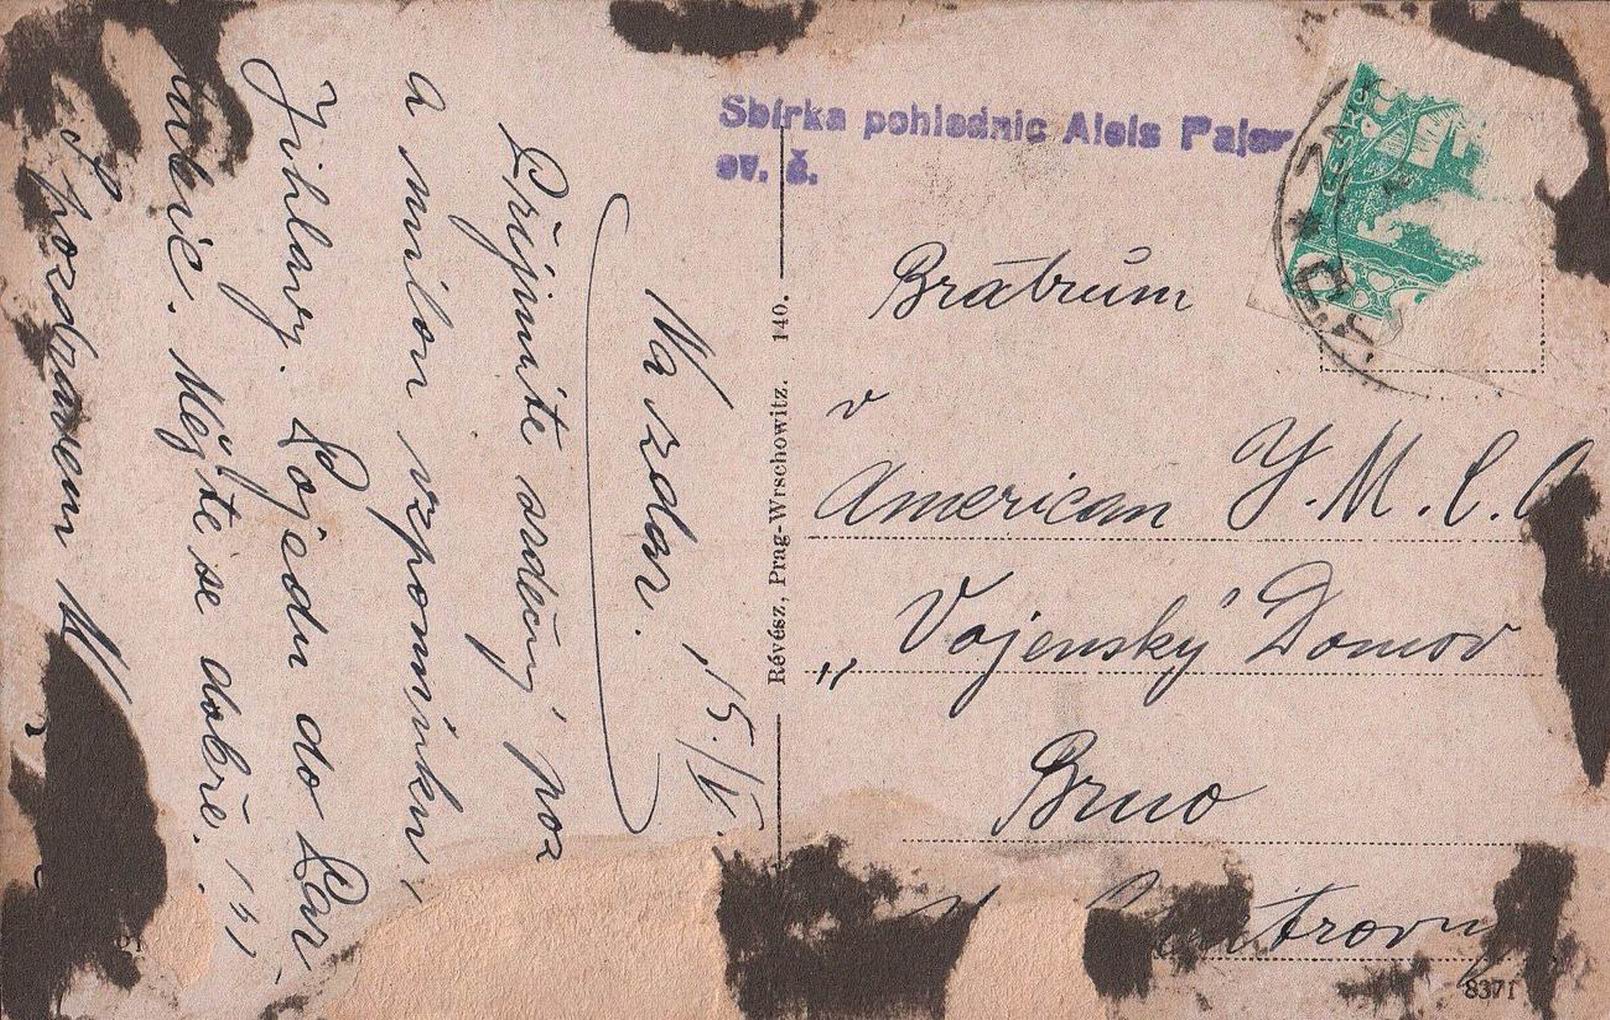 Na zdar. 15./V.
Přijměte srdečný poz
a milou vzpomínku,
Jihlavy. Pojedu do Par-
dubic. Mějte se dobře.
S pozdravem
Sbírka pohlednic Alois Pajer
ev. č.
ČESKO
Révész, Prag-Wrschowitz. 140.
Bratrům
v
American Y.M.C.A
„Vojenský Domov
Brno
8371